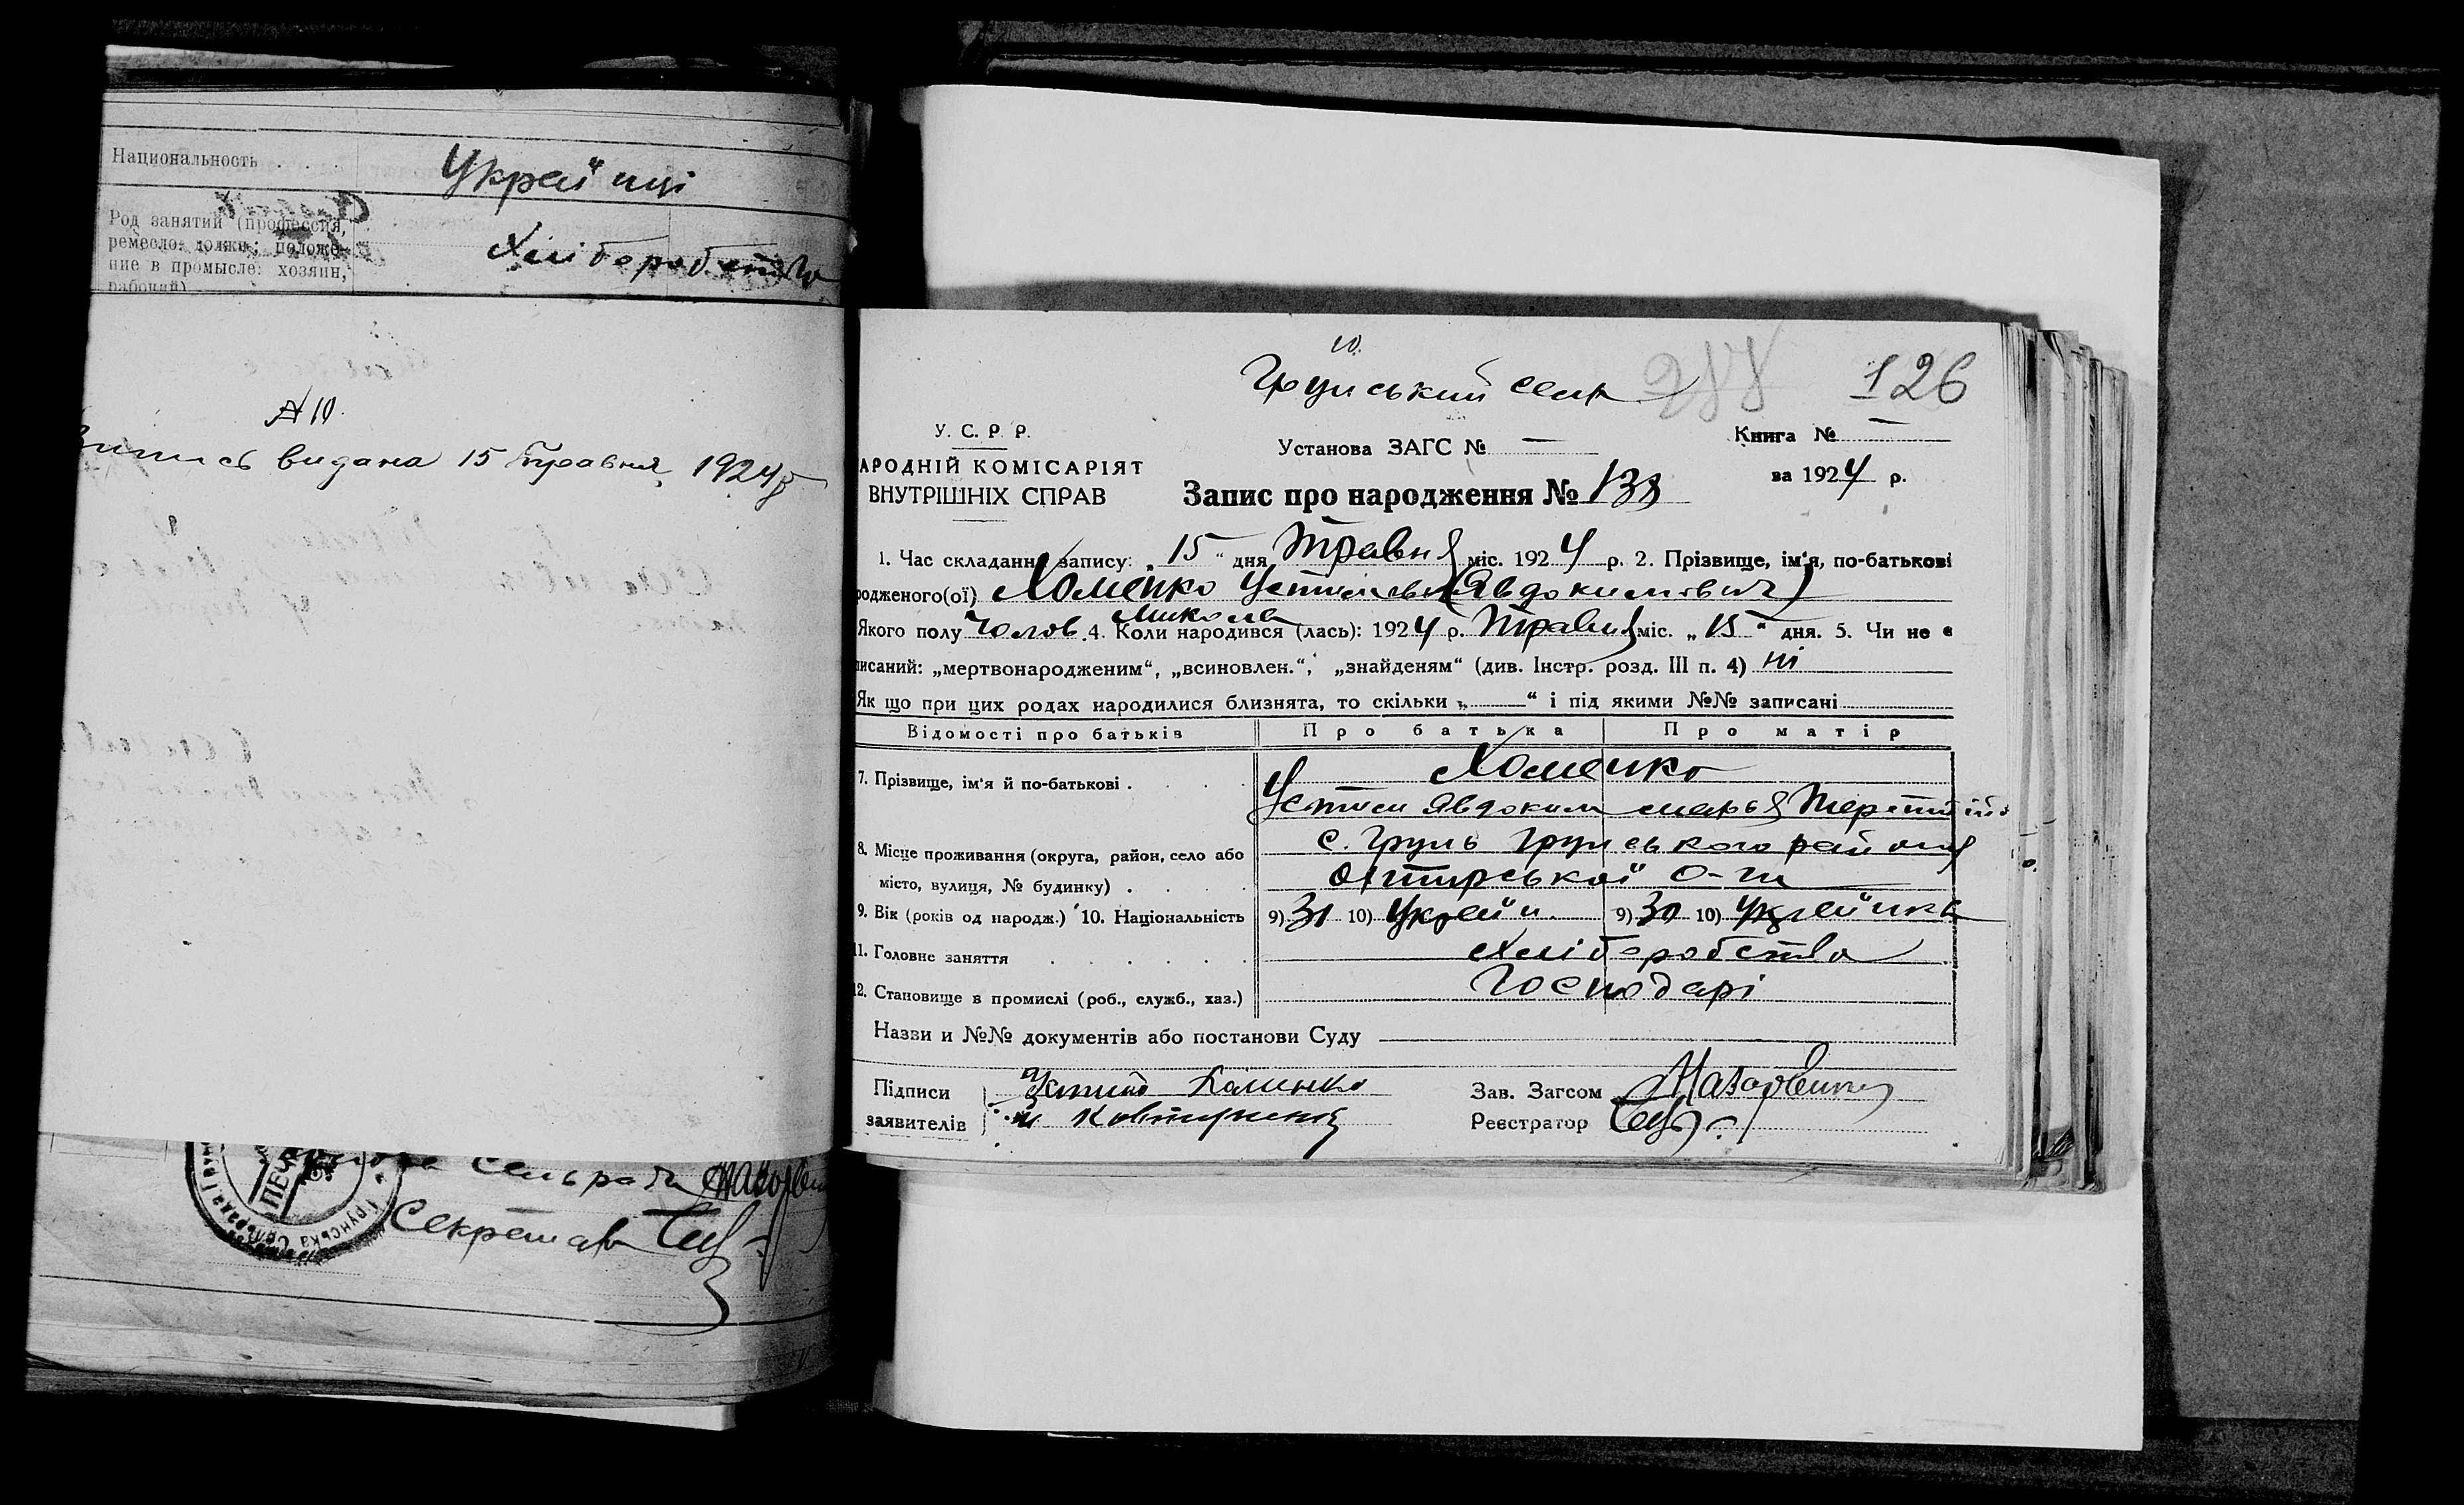 Национальность . . .
Українці
Род занятий (профессия,
ремесло, должн.; положе-
ние в промысле: хозяин,
рабочий)
Хліборобство
№ 10.
Випись видана 15 травня 1924 р
Сельради
Секретарь
Грунська Сільрада
10.
Грунський сельр
126
У. С. Р. Р.
Установа ЗАГС № —
Книга № —
АРОДНІЙ КОМІСАРІЯТ
за 1924 р.
ВНУТРІШНІХ СПРАВ
Запис про народження №
1. Час складання запису: „15“ дня Травня міс. 1924 р. 2. Прізвище, ім‘я, по-батькові
родженого(ої) Хоменко Устимов (Явдокимович)
Микола
Якого полу Чолов. 4. Коли народився (лась): 1924 р. Травня міс. „15“ дня. 5. Чи не є
писаний: „мертвонародженим“, „всиновлен.“, „знайденям“ (див. Інстр. розд. III п. 4) ні
Як що при цих родах народилися близнята, то скільки „ “ і під якими №№ записані
Відомості про батьків
Про батька
Про матір
7. Прізвище, ім‘я й по-батькові . . . .
Хоменко
Устим Явдоким Марья
8. Місце проживання (округа, район, село або
місто, вулиця, № будинку) . . . .
с. Грунь Грунського району
Охтирської О-ги
9. Вік (років од народж.) 10. Національність
9) 31 10) Україн. 9) 30 10) Українка
11. Головне заняття . . . . . .
Хліборобство
12. Становище в промислі (роб., служб., хаз.)
Господарі
Назви и №№ документів або постанови Суду
Підписи
заявителів
Зав. Загсом
Реєстратор